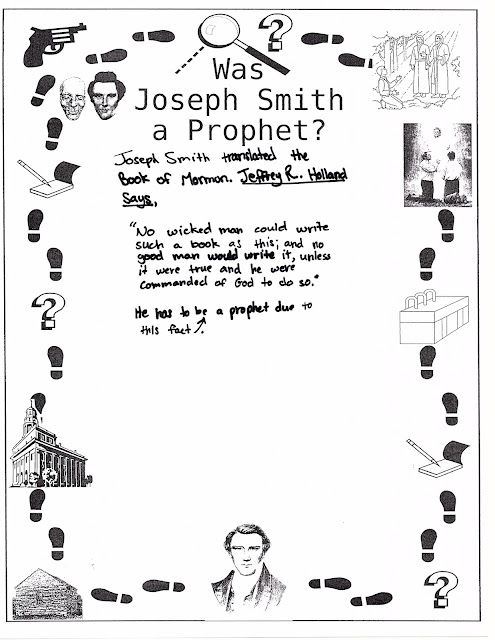 ?
Was
Joseph Smith
a Prophet?
Joseph Smith translated the
Book of Mormon. Jeffrey R. Holland
Says,
"No wicked man could write
such a book as this; and no
good man would write it, unless
it were true and he were
commanded of God to do so."
He has to be a prophet due to
this fact↗.
?
?